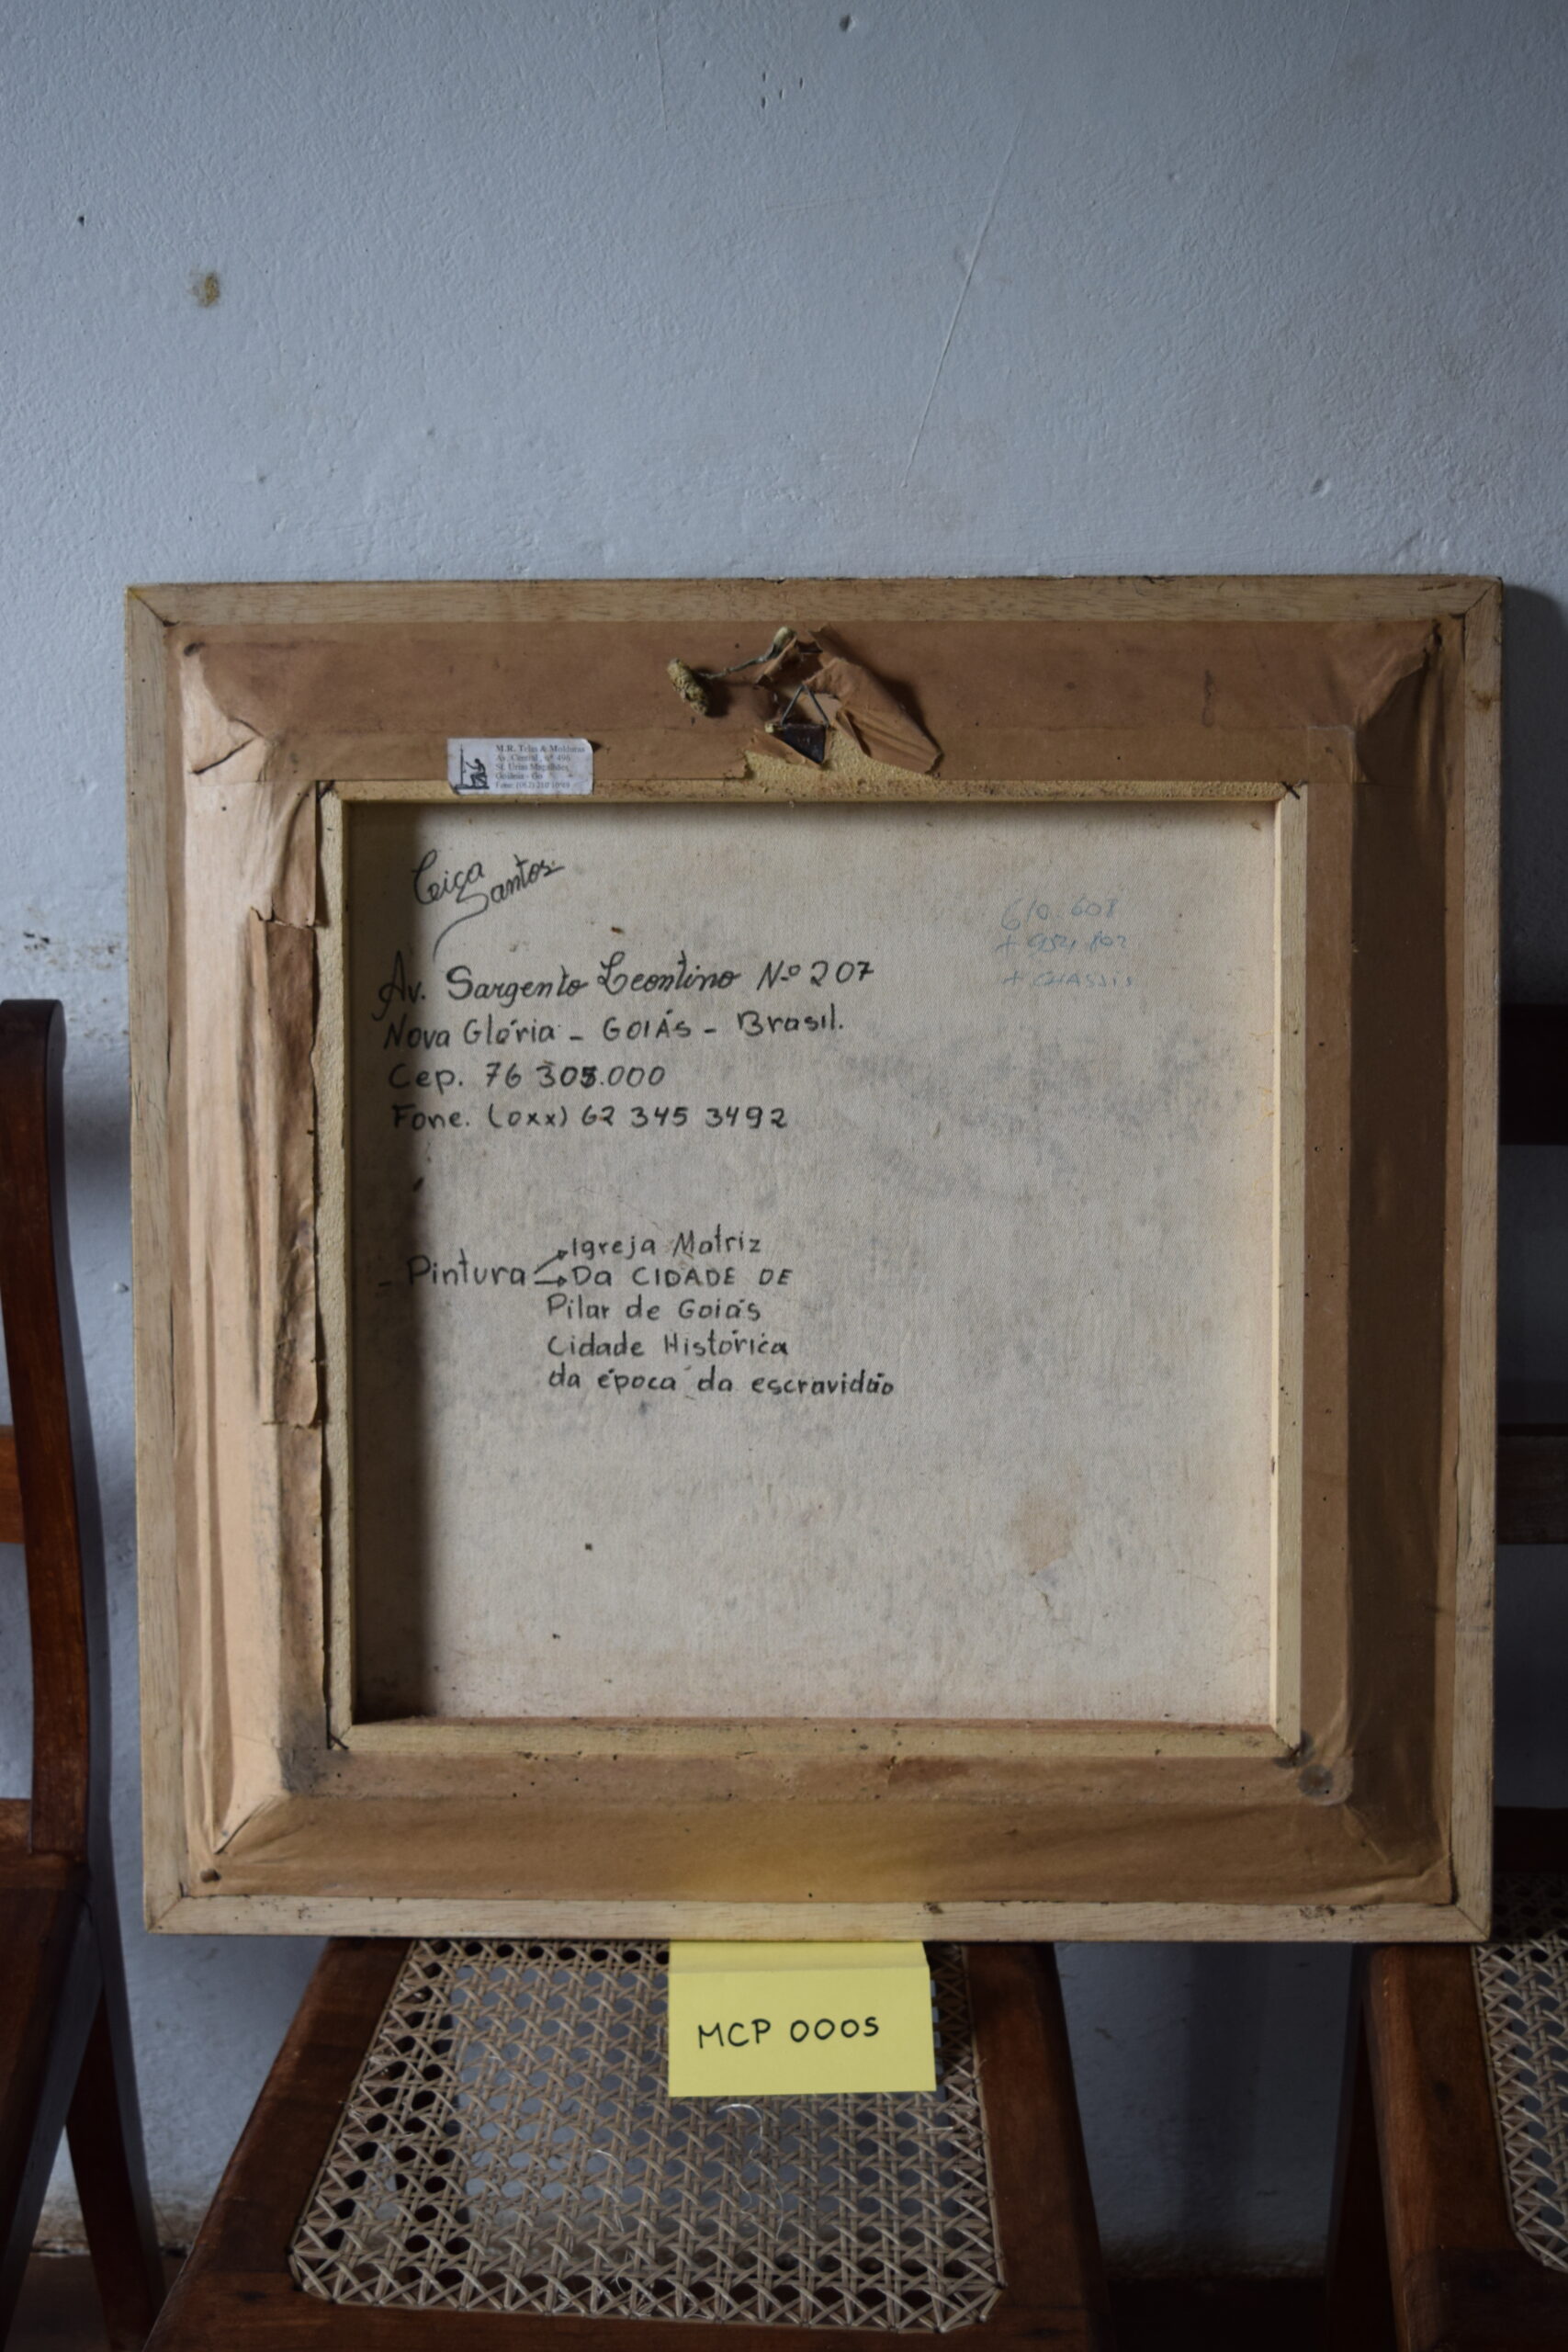 M.R. Telas & Molduras
Av. Central, nº 496
St. Urias Magalhães
Goiânia - Go
Fone: (062)
Ceiça
Santos
Av. Sargento Leontino Nº 207
Nova Glória - GOIÁS - Brasil.
Cep. 76 305.000
Fone. (0xx) 62 345 3492
610.608
+ CHASSIS
- Pintura Igreja Matriz
Da CIDADE DE
Pilar de Goiás
Cidade Histórica
da época da escravidão
MCP 0005